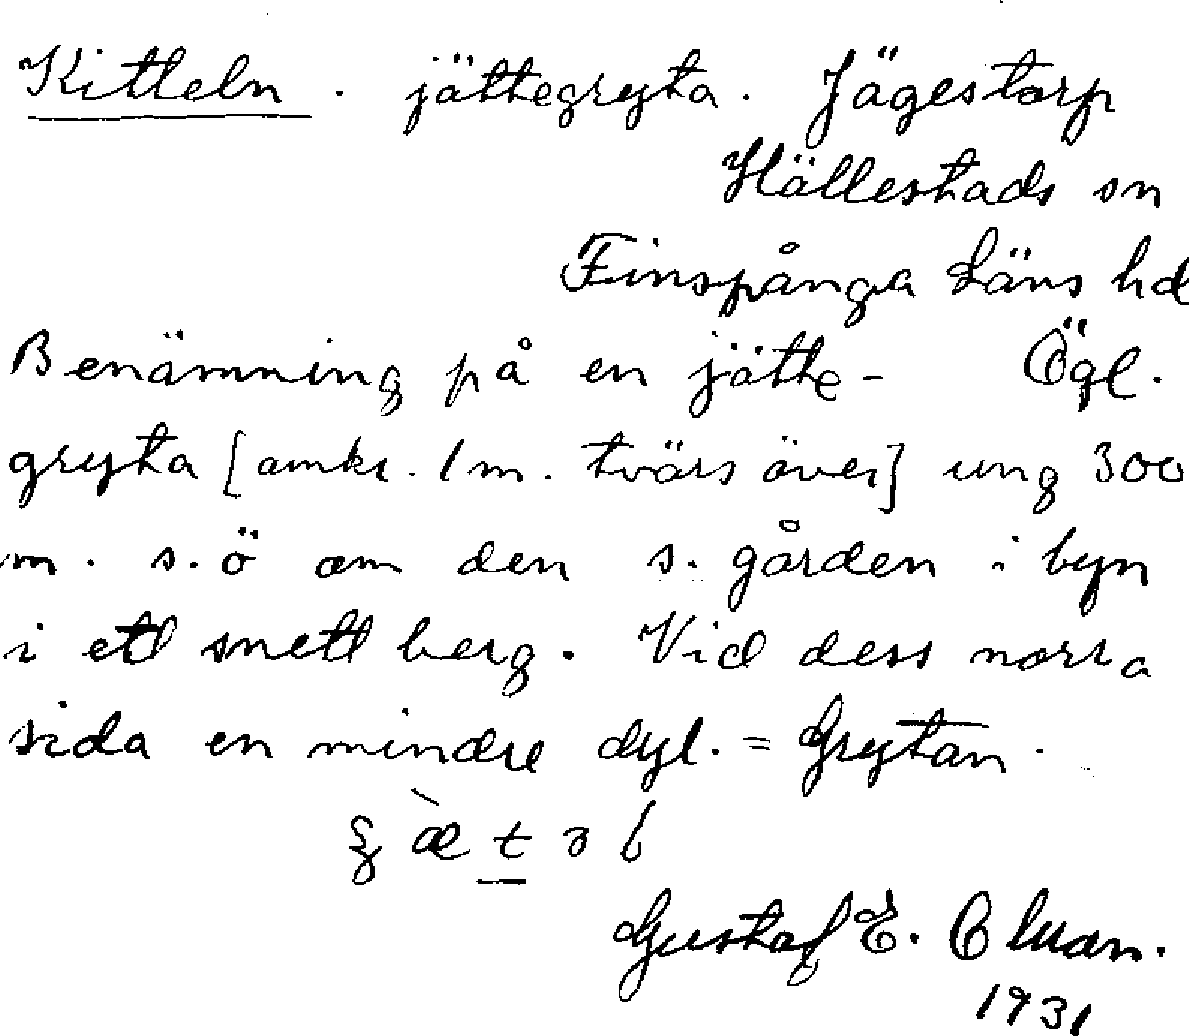 Kitteln. jättegryta. Jägestorp
Hällestads sn
Finspånga Läns hd
Benämning på en jätte- Ögl.
gryta [omkr. 1 m. tvärs över] ung 300
m. s.ö om den s. gården i byn
i ett snett berg. Vid dess norra
sida en mindre dyl. = Grytan.
Gustaf E.
1931